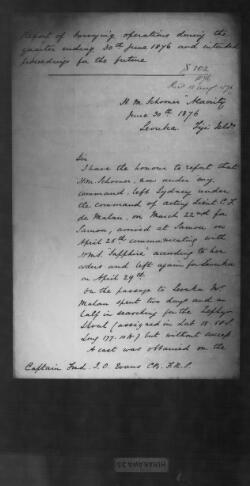 Report of Surveying operations during the
quarter ending 30th June 1876 and intended
proceedings for the future
S 102
H.M. Schooner "
June 30th 1876
Levuka Fiji Islds
Sir
I have the honour to report that
H.M. Schooner, now under my
command, left Sydney under
the command of acting Lieut C. F.
de Malan, on March 22nd for
Samoa, arrived at Samoa on
April 28th communicating with
HMS Sapphire according to her
orders and left again for Levuka
on April 29th.
On the passage to Levuka Mr
Malan spent two days and a
half in searching for the Zephyr
Shoal (assigned in Lat
Long 177 but without success
A cast was obtained on the
Captain Fred. J. O. Evans CB. F.R.S.